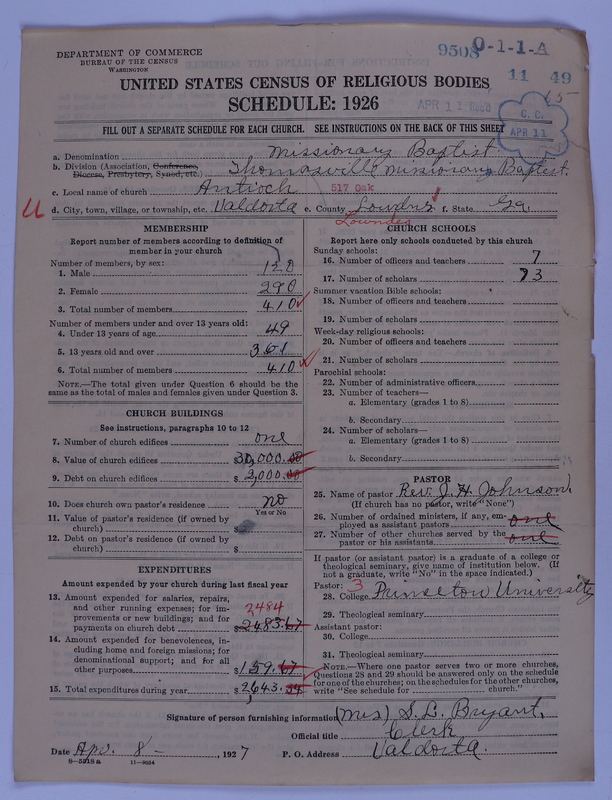 DEPARTMENT OF COMMERCE
BUREAU OF THE CENSUS
WASHINGTON
9508 0-1-1-A
11 49
65
UNITED STATES CENSUS OF RELIGIOUS BODIES
SCHEDULE: 1926
APR 11
C. C.
APR 11
FILL OUT A SEPARATE SCHEDULE FOR EACH CHURCH. SEE INSTRUCTIONS ON THE BACK OF THIS SHEET
a. Denomination Missionary Baptist
b. Division (Association, Conference, Diocese, Presbytery, Synod, etc.) Thomasville Missionary Baptist.
c. Local name of church Antioch 517 Oak
U d. City, town, village, or township, etc. Valdosta e. County Lowndes f. State Ga.
Lowndes
MEMBERSHIP
Report number of members according to definition of
member in your church
Number of members, by sex:
1. Male 120
2. Female 290
3. Total number of members 410
Number of members under and over 13 years old:
4. Under 13 years of age 49
5. 13 years old and over 361
6. Total number of members 410
NOTE.—The total given under Question 6 should be
same as the total of males and females given under Question 3.
CHURCH BUILDINGS
See instructions, paragraphs 10 to 12
7. Number of church edifices one
8. Value of church edifices $30,000.00
9. Debt on church edifices $2,000.00
10. Does church own pastor's residence no
Yes or No
11. Value of pastor's residence (if owned by
church) $
12. Debt on pastor's residence (if owned by
church) $
EXPENDITURES
Amount expended by your church during last fiscal year
13. Amount expended for salaries, repairs,
and other running expenses; for im-
provements or new buildings; and for
payments on church debt $2483.67
2484
14. Amount expended for benevolences, in-
cluding home and foreign missions; for
denominational support; and for all
other purposes $159.67
15. Total expenditures during year $2,643.34
CHURCH SCHOOLS
Report here only schools conducted by this church
Sunday schools:
16. Number of officers and teachers 7
17. Number of scholars 73
Summer vacation Bible schools:
18. Number of officers and teachers
19. Number of scholars
Week-day religious schools:
20. Number of officers and teachers
21. Number of scholars
Parochial schools:
22. Number of administrative officers
23. Number of teachers—
a. Elementary (grades 1 to 8)
b. Secondary
24. Number of scholars—
a. Elementary (grades 1 to 8)
b. Secondary
PASTOR
25. Name of pastor Rev. J. H. Johnson.
(If church has no pastor, write "None")
26. Number of ordained ministers, if any, em-
ployed as assistant pastors one
27. Number of other churches served by the
pastor or his assistants one
If pastor (or assistant pastor) is a graduate of a college or
theological seminary, give name of institution below. (If
not a graduate, write "No" in the space indicated.)
Pastor: 3
28. College Prinseton University
29. Theological seminary
Assistant pastor:
30. College
31. Theological seminary
NOTE.—Where one pastor serves two or more churches,
Questions 28 and 29 should be answered only on the schedule
for one of the churches; on the schedules for the other churches,
write "See schedule for church."
Signature of person furnishing information (Mrs) S. L. Bryant,
Official title Clerk
Date Apr. 8 -, 1927 P. O. Address Valdosta.
8—5518a 11—9034